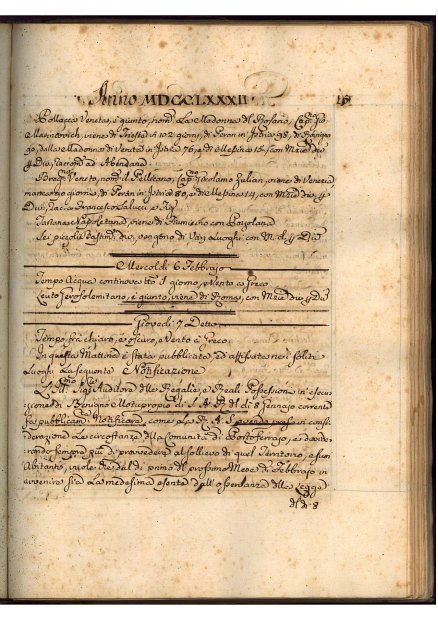 Anno MDCCLXXXII
Pollacca Veneta, è giunto, nom.ª La Madonna del Rosario, Cap.º
Marincovich, viene di Trieste in 102 giorni, di Peran in Istria 98, di
dalla Madonna di Veruda in Istria 76, e di Messina 15, con Merci div. p
Dui, racc.º ad
Veneto, nom.º il Pellicano, Cap.º Girolamo Zulian, viene di Venezia
mancano giorni, di Peran in Istria 80, e di Messina 14, con Merci div. p
Dui, rac. a Francesco
Tartana Napoletana, viene di Fiumicino con Pozzolana
Sei piccoli Bastim.ti div. vengono di Vari Luoghi con M. d. p Dui
Mercoldi 6 Febbrajo
Tempo Acqua continova tt.º il giorno, e Vento a Greco
Leuto Gerosolemitano, è giunto, viene di Roma, con Merci div. p Dui
Giovedi 7 Detto
Tempo frà chiaro, e oscuro, e Vento è Greco
In questa Mattina è stata pubblicata ed affissata nei soliti
Luoghi La seguente Notificazione
L'Ill.mo Sig.re Auditore delle Regalie, e Reali Possessioni in esecu
zione di Benigno Motuproprio di S. A. R. del dì 8 Gennajo corrente
fa pubblicam.te Notificare, come La R. A. S. avendo preso in consi
derazione Le circostanze della Comunità di Portoferrajo, e deside
rando sempre più di provvedere al sollievo di quel Territorio, e suoi
Abitanti, vuole che dal dì primo del prossimo Mese di Febbrajo in
avvenire sia La medesima esente dall'osservanza delle Legge
del dì 8